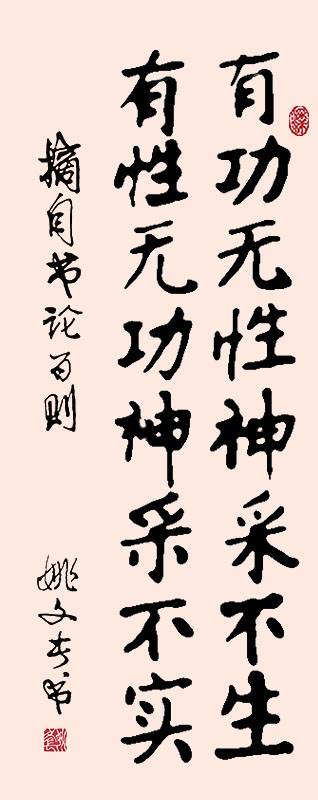 有功无性神采不生
有性无功神采不实
摘自书论百则
姚文书